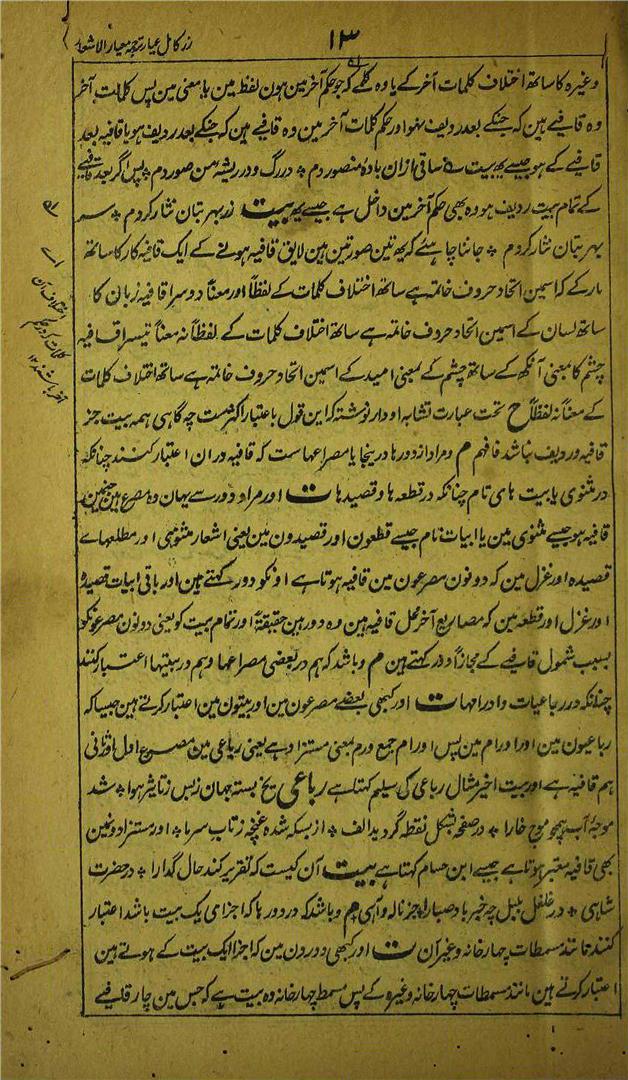 ۱۳
زر کامل عیار ترجمہ معیار الاشعار
وغیرہ کا ساتھ اختلاف کلمات آخر کے یا وہ کلمے کہ جو حکم آخر مین ہون لفظ مین یا معنی مین پس کلمات آخر
وہ قافیے ہین کہ جنکے بعد ردیف نہو اور حکم کلمات آخر مین وہ قافیے ہین کہ جنکے بعد ردیف ہو یا قافیہ بعد
قافیے کے ہو جیسے یہ بیت ساقی ازان بادہ منصور دم ٭ در رگ و در ریشہ من صور دم ٭ پس اگر بعد قافیے
کے تمام بیت ردیف ہو وہ بھی حکم آخر مین داخل ہے جیسے یہ بیت زر بہر بتان نثار کردم ٭ سر
بہر بتان نثار کردم ٭ جاننا چاہیئے کہ یہ تین صورتین ہین لایق قافیہ ہونے کے ایک قافیہ کار کا ساتھ
بار کے کہ اسمین اتحاد حروف خاتمہ ہے ساتھ اختلاف کلمات کے لفظاً اور معناً دوسرا قافیہ زبان کا
ساتھ لسان کے اسمین اتحاد حروف خاتمہ ہے ساتھ اختلاف کلمات کے لفظاً نہ معناً تیسرا قافیہ
چشم کا بمعنی آنکھ کے ساتھ چشم کے بمعنی امید کے اسمین اتحاد حروف خاتمہ ہے ساتھ اختلاف کلمات
کے معناً نہ لفظاً ح تحت عبارت تشابہ ادوار نوشتہ کہ این قول باعتبار اکثرست چہ گاہی ہمہ بیت جز
قافیہ و ردیف نباشد فافہم م و مراد از دورہا درینجا یا مصراعہاست کہ قافیہ در ان اعتبار کنند چنانکہ
در مثنوی یا بیت ہای تام چنانکہ در قطعہ ہا و قصیدہا ت اور مراد دور سے یہان وہ مصرع ہین جنمین
قافیہ ہو جیسے مثنوی مین یا ابیات تام جیسے قطعون اور قصیدون مین یعنی اشعار مثنوی اور مطلعہاے
قصیدہ اور غزل مین کہ دونون مصرعون مین قافیہ ہوتا ہے اونکو دور کہتے ہین اور باقی ابیات قصیدہ
اور غزل اور قطعہ مین کہ مصاریع آخر محل قافیہ ہین وہ دور ہین حقیقۃً اور تمام بیت کو یعنی دونون مصرعونکو
بسبب شمول قافیے کے مجازاً دور کہتے ہین م و باشد کہ ہم در بعضی مصراعہا و ہم در بیتہا اعتبار کنند
چنانکہ در رباعیات و اورامہا ت اور کبھی بعضے مصرعون مین اور بیتون مین اعتبار کرتے ہین جیسا کہ
رباعیون مین اور اورام مین پس اورام جمع ورم بمعنی مستزاد ہے یعنی رباعی مین مصرع اول اور ثانی
ہم قافیہ ہے اور بیت اخیر مثال رباعی کی سیلم کہتا ہے رباعی یخ بستہ جہان زبس ز تاثیر ہوا ٭ شد
موجۂ آب ہمچو موج خارا ٭ در صفحہ بشکل نقطہ گردید الف ٭ از بسکہ شدہ غنچہ ز تاب سرما ٭ اور مستزاد ونمین
بھی قافیہ معتبر ہوتا ہے جیسے ابن حسام کہتا ہے بیت آن کیست کہ تقریر کند حال گدارا ٭ در حضرت
شاہی ٭ در غلغل بلبل چہ خبر باد صبارا ٭ جز نالہ و آہی م و باشد کہ در دورہا کہ اجزای یک بیت باشد اعتبار
کنند مانند مسمطات چہار خانہ و غیر آن ت اور کبھی دورون مین کہ اجزا ایک بیت کے ہوتے ہین
اعتبار کرتے ہین مانند مسمطات چہار خانہ وغیرہ کے پس مسمط چہار خانہ وہ بیت ہے کہ جس مین چار قافیے